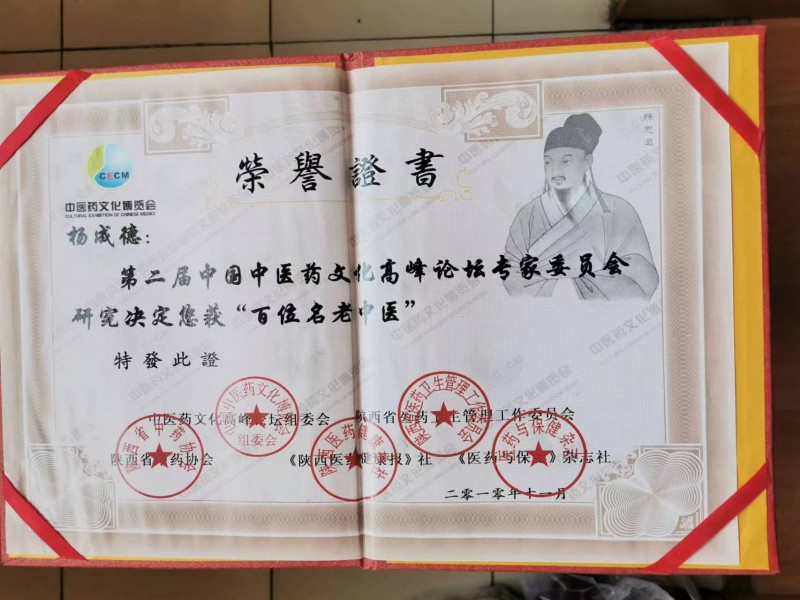 孫思邈
榮譽證書
CECM
中医药文化博览会
CULTURAL EXHIBITION OF CHINESE MEDICI
杨成德：
第二届中国中医药文化高峰论坛专家委员会
研究决定您获“百位名老中医”
特發此證
中医药文化高峰论坛组委会 陕西省医药卫生管理工作委员会
陕西省中药协会 《陕西医药健康报》社 《医药与保健》杂志社
组委会
二零一零年十一月